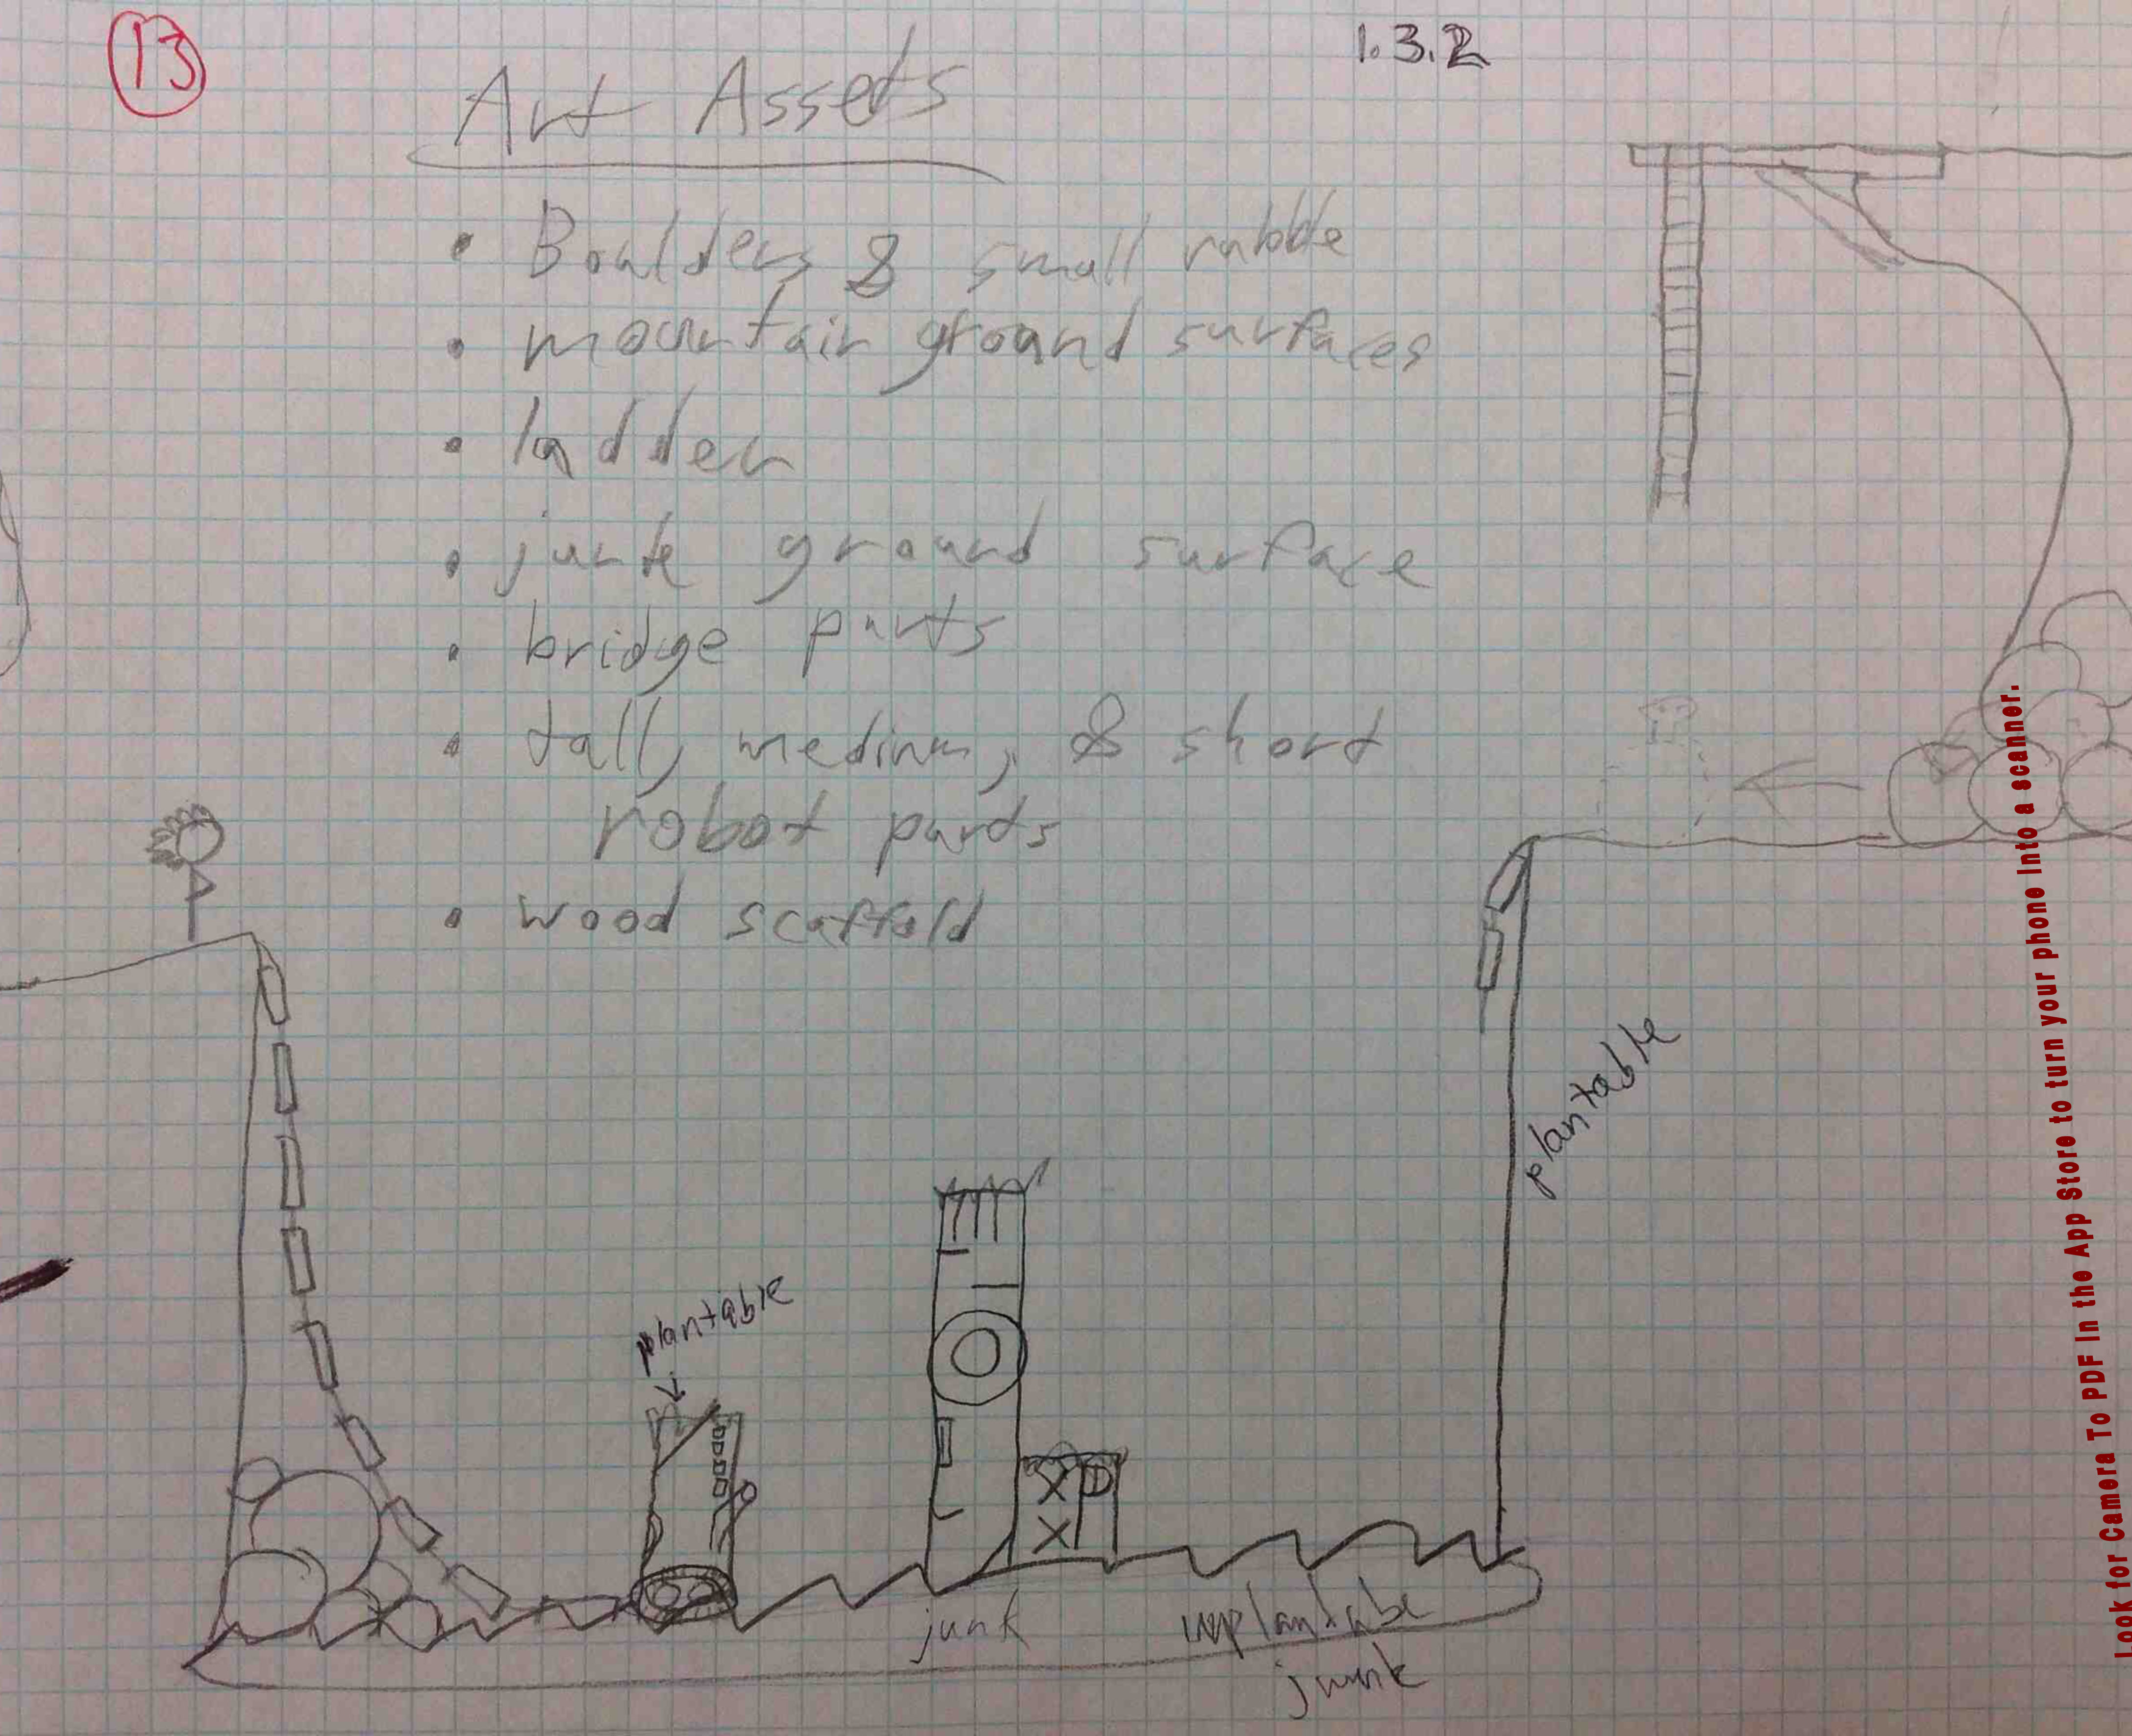 13
1.3.2
Art Assets
• Boulders & small rubble
• mountain ground surfaces
• ladder
• junk ground surface
• bridge parts
• tall, medium, & short
robot parts
• wood scaffold
plantable
plantable
junk
unplantabe
junk
Look for Camera To PDF in the App Store to turn your phone into a scanner.